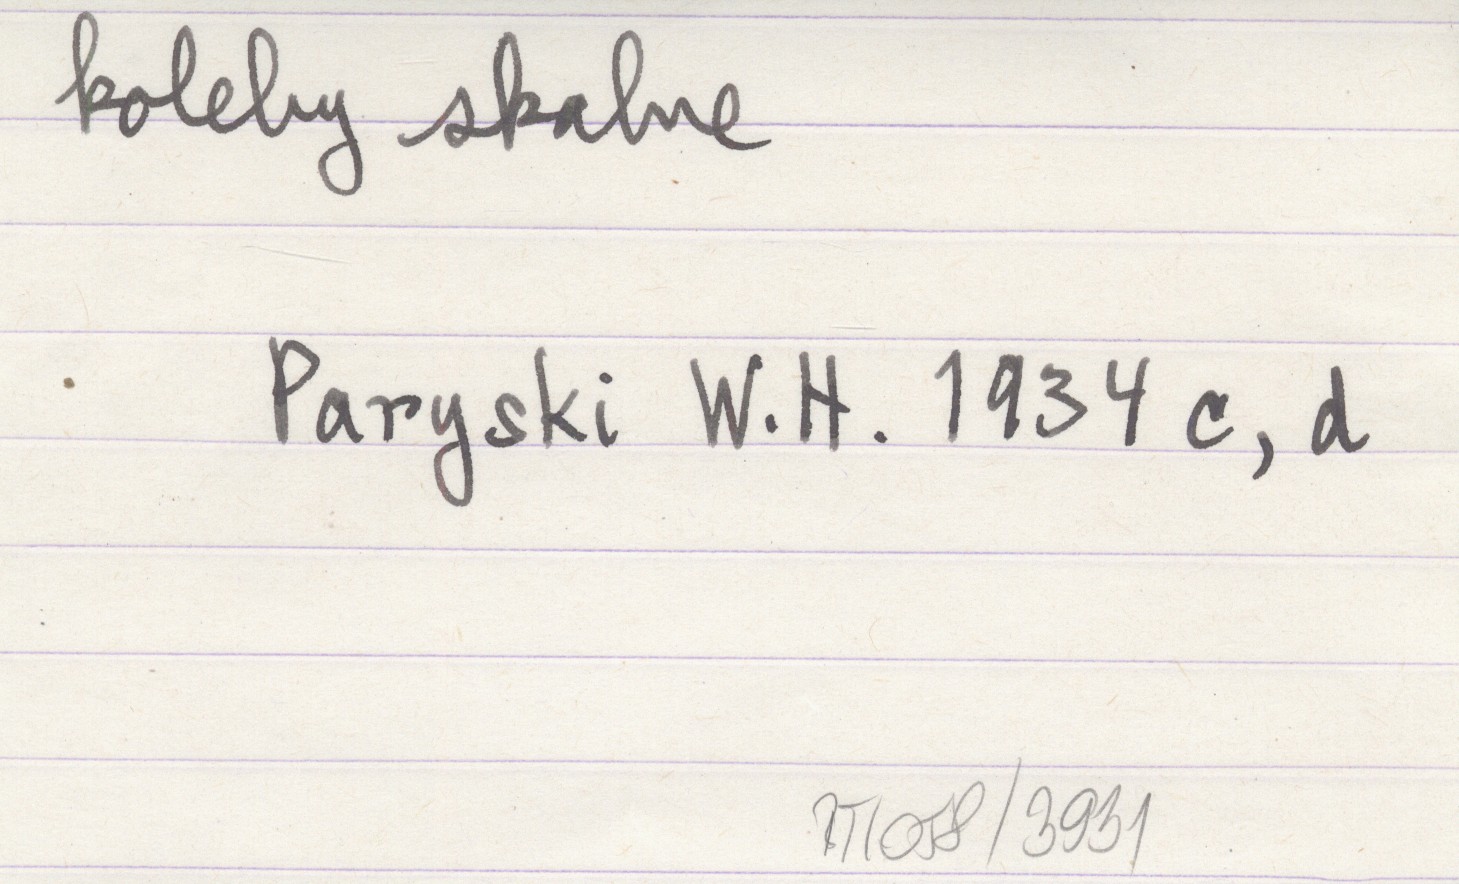 koleby skalne
Paryski W.H. 1934 c, d
/3931